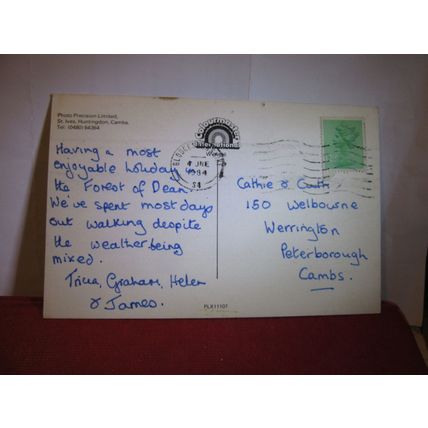 Photo Precision Limited,
St. Ives, Huntingdon, Cambs.
Tel: (0480) 64364
Colourmaster
International
4 JNE
1984
Having a most
enjoyable holiday
the Forest of Dean.
We've spent most days
out walking despite
the weather being
mixed.
Tricia, Graham, Helen
& James.
Cathie &
150 Welbourne
Werrington
Peterborough
Cambs.
PLX11107